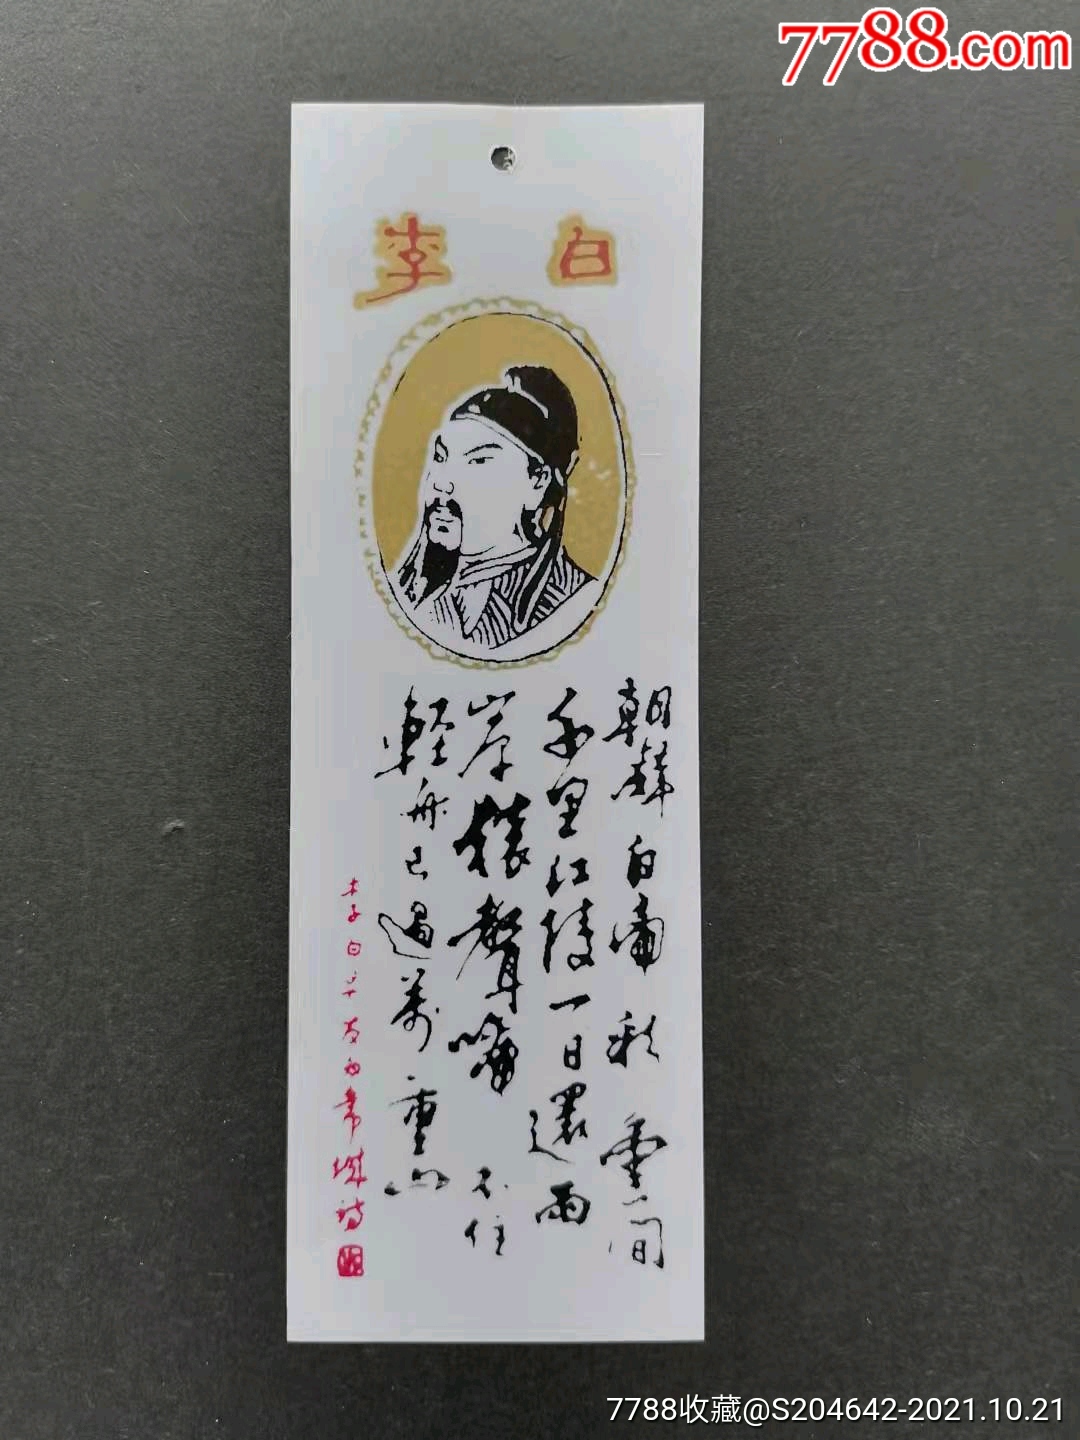 7788.com
李 白
朝辭白帝彩雲間
千里江陵一日還兩
岸猿聲啼不住
輕舟已過萬重山
李白早发白帝城诗
7788收藏@S204642-2021.10.21